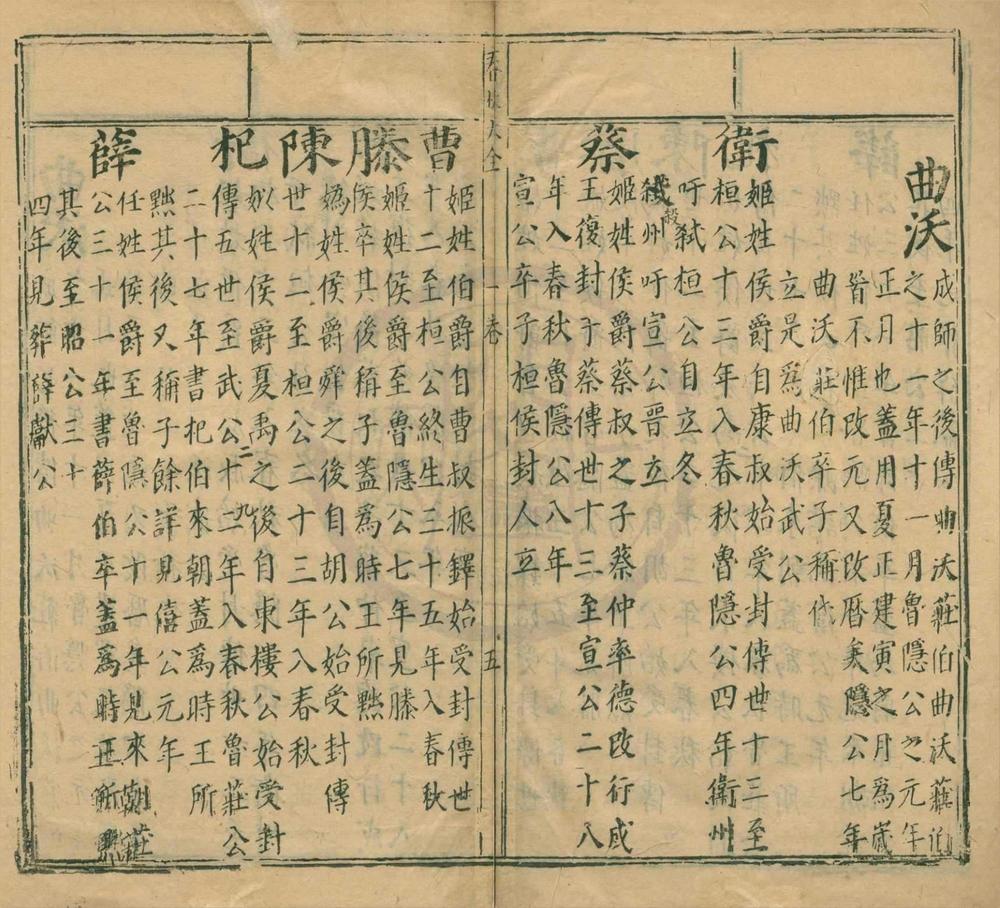 曲沃
成師之後傳曲沃莊伯曲沃莊伯
之十一年十一月魯隱公之元年
正月也蓋用夏正建寅之月爲歲
晉不惟改元又改曆矣隱公七年
曲沃莊伯卒子稱代
立是爲曲沃武公
衛
姬姓侯爵自康叔始受封傳世十三至
桓公十三年入春秋魯隱公四年衛州
吁弑桓公自立冬
殺州吁宣公晋立
蔡
姬姓侯爵蔡叔之子蔡仲率德改行成
王復封于蔡傳世十三至宣公二十八
年入春秋魯隱公八年
宣公卒子桓侯封人立
春秋大全 一卷 五
曹
姬姓伯爵自曹叔振鐸始受封傳世
十二至桓公終生三十五年入春秋
滕
姬姓侯爵至魯隱公七年見滕
侯卒其後稱子蓋爲時王所黜
陳
嬀姓侯爵舜之後自胡公始受封傳
世十二至桓公二十三年入春秋
杞
姒姓侯爵夏禹之後自東樓公始受封
傳五世至武公二十九年入春秋魯莊公
二十七年書杞伯來朝蓋爲時王所
黜其後又稱子餘詳見僖公元年
薛
任姓侯爵至魯隱公十一年見來朝莊
公三十一年書薛伯卒蓋爲時王所黜
其後至昭公三十
四年見葬薛獻公